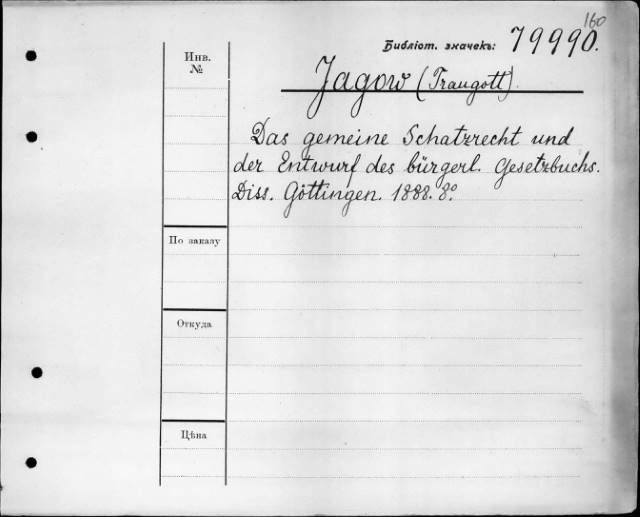 160
Библіот. значекъ: 79990.
Инв.
№
Jagow (Traugott)
Das gemeine Schatzrecht und
der Entwurf des bürgerl. Gesetzbuchs.
Diss. Göttingen. 1888. 8.º
По заказу
Откуда
Цѣна